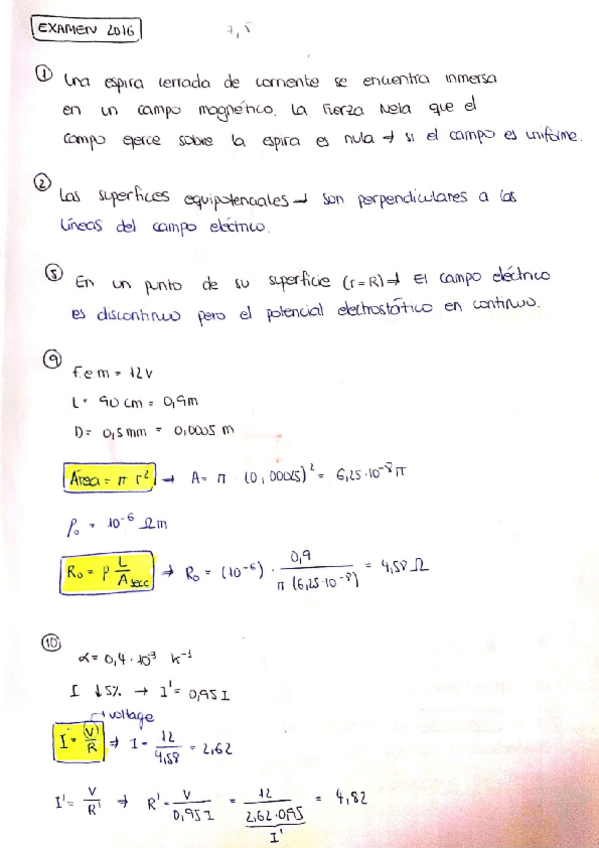 EXAMEN 2016
7,5
① Una espira cerrada de corriente se encuentra inmersa
en un campo magnético. La Fuerza Neta que el
campo ejerce sobre la espira es nula → si el campo es uniforme.
② Las superfices equipotenciales → son perpendiculares a las
líneas del campo eléctrico.
⑤ En un punto de su superficie (r=R) → El campo eléctrico
es discontinuo pero el potencial electrostático en continuo.
⑨
f.e m = 12 V
L = 90 cm = 0,9m
D = 0,5 mm = 0,0005 m
Área = π r² → A = π (0,00025)² = 6,25·10⁻⁸ π
ρ₀ = 10⁻⁶ Ωm
R₀ = ρ L/A secc → R₀ = (10⁻⁶) · 0,9/π (6,25·10⁻⁸) = 4,58 Ω
⑩
α = 0,4·10⁻³ K⁻¹
I ↓5% → I' = 0,95 I
→ voltage
I = V/R ⇒ I = 12/4,58 = 2,62
I' = V/R' ⇒ R' = V/0,95 I = 12/2,62·0,95 = 4,82
I'